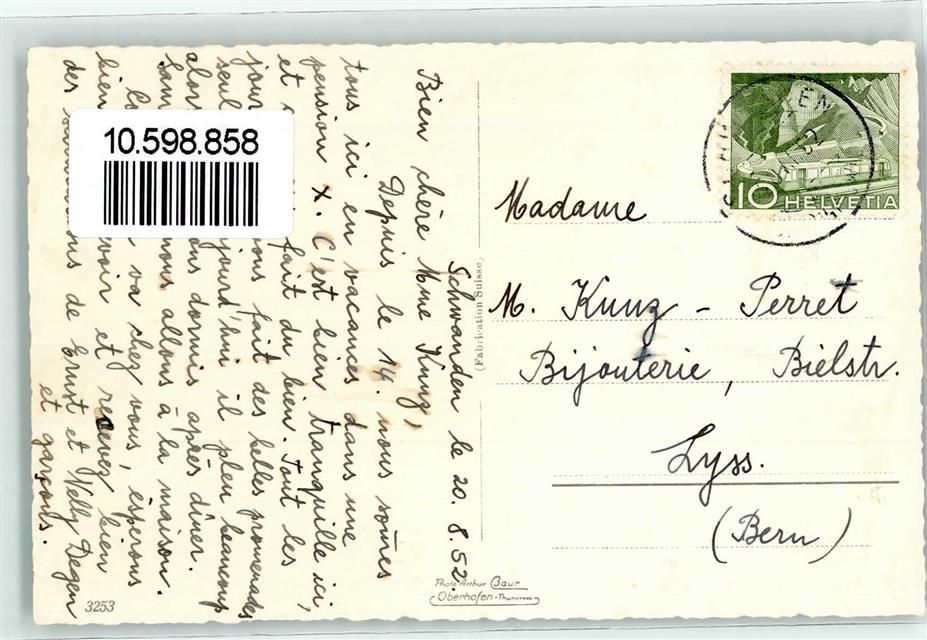 Schwanden le 20. 8. 52.
Bien chère Mme Kunz,
Depuis le 14. nous somes
tous ici en vacances dans une
pension x. C'est bien tranquille ici,
et fait du bien. Tout les
jour nous fait des belles promenades
seul aujourd'hui il pleu beaucoup
alors nous dormis après dîner.
Sam nous allons à la maison.
va chez vous, éspérons
bien revoir et recevez bien
des salutations de Ernst et Nelly Degen
et garçons.
10.598.858
3253
(Fabrication Suisse)
Photo Arthur Baur
Oberhofen-Thunersee
10 HELVETIA
Madame
M. Kunz - Perret
Bijouterie, Bielstr.
Lyss.
(Bern)